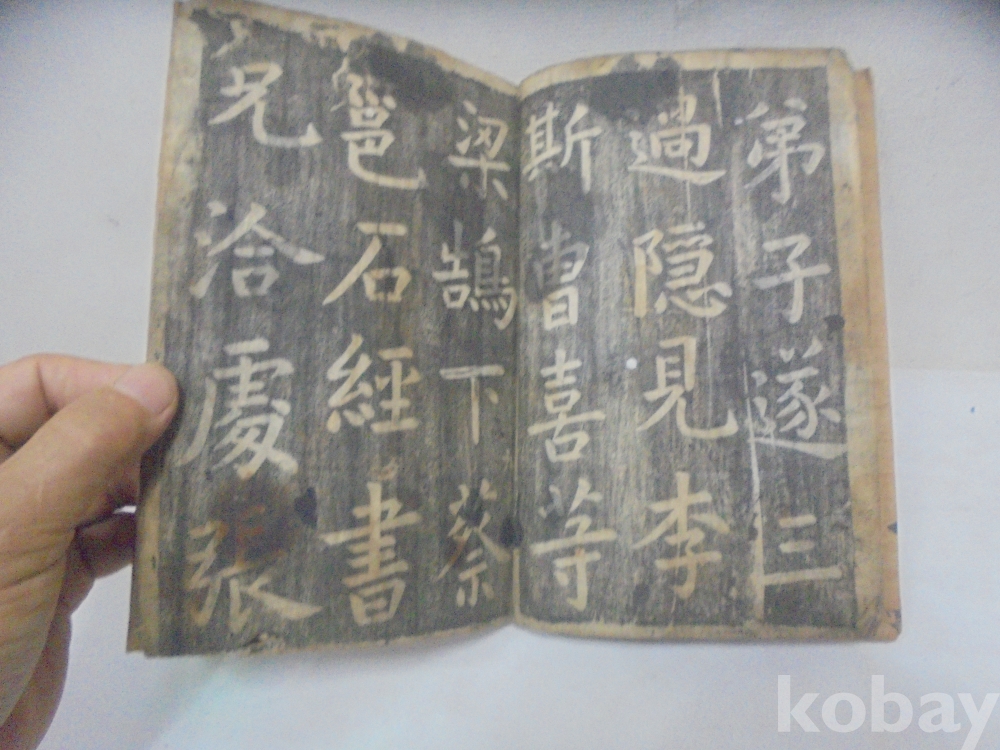 弟子遂三
過隠見李
斯曺喜䓁
梁鵠下蔡
邕石經書
兄洽處張
kobay